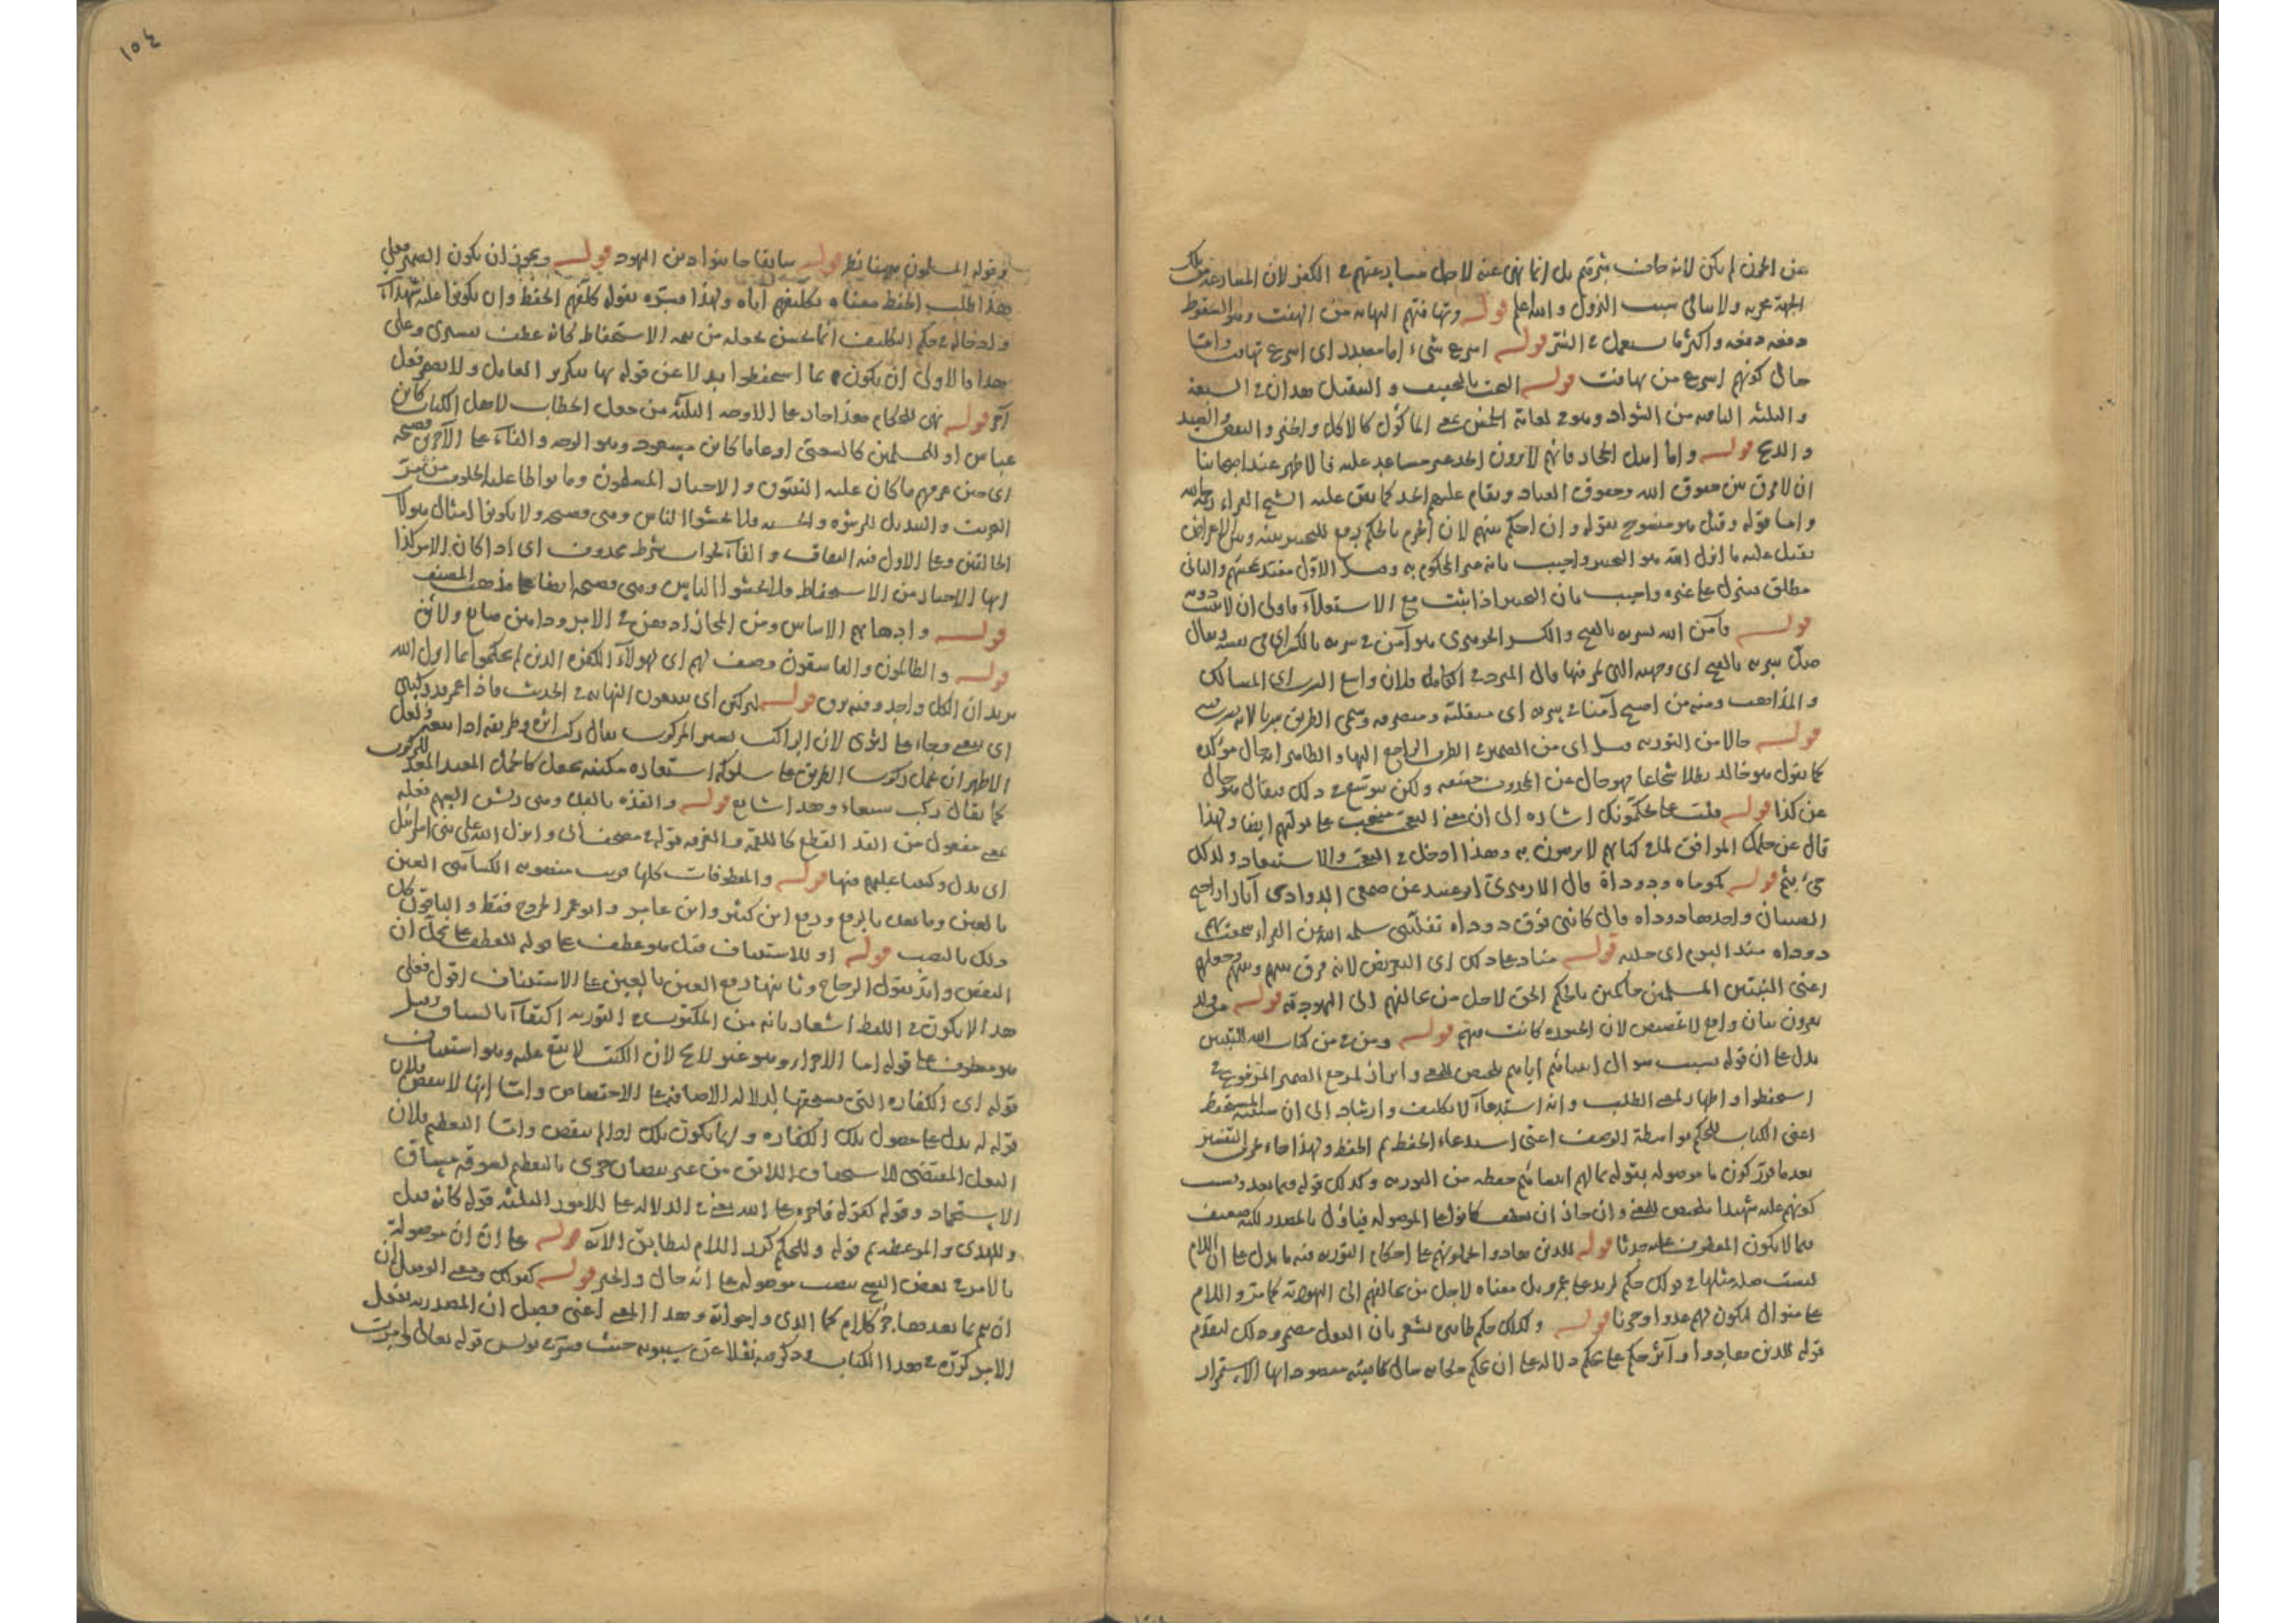 عن الحزن لم يكن لانه خاف شرهم بل انما نهى عنه لاجل مسارعتهم في الكفر لان المسارعة من تلك
الجهة محزنة ولا سبب النزول والله اعلم قوله وتهافتهم التهافت من الهفت وهو السقوط
دفعة دفعة واكثر ما يستعمل في الشر قوله اسرع شيء اما مصدر اى اسرع تهافت واما
حال كونهم اسرع من تهافت قوله السحت بالتخفيف و التثقيل هذان في السبعة
و الثلثة الباقية من الشواذ وهو في لغاته الخمس بمعنى المأكول كالاكل والخبز والنقض والصيد
و الذبح قوله و اما اهل الحجاز فانهم لا يرون الحد غير مساعد عليه فالاظهر عند اصحابنا
ان لا فرق بين حقوق الله وحقوق العباد ويقام عليهم الحد كما نص عليه الشيخ الفراء رحمه الله
و اما قوله وقيل هو منسوخ بقوله و ان احكم بينهم لان الجزم بالحكم يرفع التخيير بينه وبين الاعراض
بما انزل الله هو التخيير واجيب بانه المحكوم به الاول والثانى
مطلق ينزل على غيره واجيب بان التخيير اذا ثبت مع الاستعلاء فاولى ان لا يثبت دونه
قوله وآمن الله سربه بالفتح والكسر الجوهرى هو آمن في سربه بالكسر اى في نفسه ويقال
سربه بالفتح اى وجهته التى يمر فيها قال المبرد في الكامل فلان واسع السرب اى المسالك
و المذاهب ومنه من اصبح آمنا في سربه اى متقلبه ومنصرفه وسمى الطريق سربا لانه يسرب فيه
قوله حالا من التورية قيل اى من الضمير في الظرف الراجع اليها و الظاهر انه حال مؤكدة
كما يقول هو خالد بطلا شجاعا فهو حال عن الحدوث حقيقة ولكن توسع في ذلك فيقال هو حال
عن كذا قوله قلت على تحكيمونك اشارة الى ان معنى التعجب منصب على توليهم ايضا ولهذا
قال عن حكمك الموافق لما في كتابهم لا يرضون به وهذا ادخل في التعجب والاستبعاد ولذلك
جىء بثم قوله كموماة ودوداة قال الازهرى ابو عبيد عن الاصمعى الدوادى آثار اراجيح
الصبيان واحدها دوداة قال كاننى فوق دوداة تقلبنى سلمة عن الفراء سمعت
دوداة منذ اليوم اى جلبة قوله مناد على ذلك اى التعريض لانه فرق بينهم وبينهم وجعلهم
اعنى النبيين المسلمين حاكمين بالحكم الحق لاجل من خالفهم الى اليهودية قوله
بيان واقع لا تخصيص لان كانت فيهم قوله ومن في من كتاب الله للتبيين
يدل على ان قوله بسبب سؤال انبيائهم اياهم تلخيص للمعنى و ابراز لمرجع الضمير المرفوع في
استحفظوا واظهار لمعنى الطلب وانه استدعاء لا تكليف وارشاد الى ان
اعنى الكتاب للحكم بواسطة الوصف اعنى استدعاء الحفظ ثم الحفظ ولهذا جاء التفسير
بعد ما قرر كون ما موصولة بقوله بما سالهم انبيائهم حفظه من التورية وكذلك قوله فيما بعد وبسبب
كونهم عليه شهداء تلخيص للمعنى وان جاز ان يعطف كانوا على الموصولة فيأول بالمصدر لكنه ضعيف
فيما لا يكون المعطوف عليه حدثا قوله للذين هادوا يحملونهم على احكام التورية فيه ما يدل على ان اللام
ليست صلة مثلها في قولك حكم لزيد على عمرو بل معناه لاجل من خالفهم الى اليهودية كما مر و اللام
على منوال ليكون لهم عدوا وحزنا قوله وكذلك حكم يشعر بان الفعل مضمر وذلك لتقدم
قوله للذين هادوا وآثر حكم على يحكم دلالة على ان يحكم حكاية حال ماضية مقصودا بها الاستمرار
١٥٤
في قوله المسلمون قوله سابقا جانبوا دين اليهود قوله ويجوز ان يكون الضمير فعلى
هذا طلب الحفظ معناه تكليفهم اياه ولهذا فسره بقوله كلفهم الحفظ وان يكونوا عليه شهداء
وادخاله في حكم التكليف انما يحسن بجعله من الاستحفاظ كانه عطف تفسيرى وعلى
هذا فالاولى ان يكون بما استحفظوا بدلا عن قوله بها بتكرير العامل ولا يضمر فعل
آخر قوله نهى للحكام هذا جار على الاوجه الثلثة من جعل الخطاب لاهل الكتاب كابن
عباس او للمسلمين كالشعبى او عاما كابن مسعود وهو الوجه والفاء على الآخرين فصيحة
اى حين عرفهم ما كان عليه النبيون و الاحبار المسلمون وما تواطأ عليه الخلوف من
التحريف والتبديل للرشوة والخشية فلا تخشوا الناس وهى فصيحة ولا تكونوا امثال هؤلاء
الخالفين وعلى الاول فيه التفات والفاء لجواب شرط محذوف اى اذا كان الامر كذا
ايها الاحبار من الاستحفاظ فلا تخشوا الناس وهى فصيحة ايضا على مذهب المصنف
قوله
قوله والظالمون والفاسقون وصف لهم اى لهؤلاء الكفرة الذين لم يحكموا بما انزل الله
يريد ان الكل واحد وفيه قوله ليركبن اى يتبعون النهاية في الحديث فاذا عمر قد ركبنى
اى تبعنى وجاء على اثرى لان الراكب يسير بسير المركوب يقال ركبت اثره وطريقه اذا تبعته ولعل
الاظهر ان يجعل ركوب الطريق على سلوكه استعارة مكنية بجعل كالجمل المعبد المعد للركوب
كما يقال ركب سبعاء وهذا شايع قوله والقذة بالقذة وهى ريش السهم فعلة
بمعنى مفعول من القذ القطع كاللقمة والغرفة قوله في مصحف ابى وانزل الله على بنى اسرائيل
اى بدل وكتبنا عليهم فيها قوله والمعطوفات كلها قرئت منصوبة الكسائى العين
بالعين وما بعده بالرفع ورفع ابن كثير وابن عامر وابو عمرو الجروح فقط والباقون كل
ذلك بالنصب قوله او للاستيناف قيل هو عطف على قوله للعطف على محل ان
النفس وايد بقول الزجاج وثانيها رفع العين بالعين على الاستيناف اقول فعلى
هذا لا يكون في اللفظ اشعار بانه من المكتوب في التورية اكتفاء بالسياق وقيل
هو معطوف على قوله اما الاجراء وهو غير لائح لان الكتب لا يقع عليه وهو استيناف
قوله اى الكفارة التى يستحقها لدلالة الاضافة على الاختصاص واما انها لا ينقص فلان
قوله له يدل على حصول تلك الكفارة وانما يكون تلك اذا لم ينقص واما التعظيم فلان
الفعل المقتضى للاستحقاق اللائق من غير نقصان حرى بالتعظيم لسوقه مساق
الاستحماد وقوله كقوله فاجره على الله يعنى في الدلالة على الامور الثلثة قوله كانه قيل
وللهدى والموعظة ثم قوله وللحكم كرر اللام ليطابق الآية قوله على ان ان موصولة
بالامر في بعض النسخ نصب موصولة على انه حال والخبر قوله كقولك ومعنى الوصل ان
ان يتم بما بعدها جزء كلام كما الذى واخواته وهذا المعنى اعنى وصل ان المصدرية بفعل
الامر كرره في هذا الكتاب وذكره نقلا عن سيبويه حيث فسر في يونس قوله تعالى وامرت